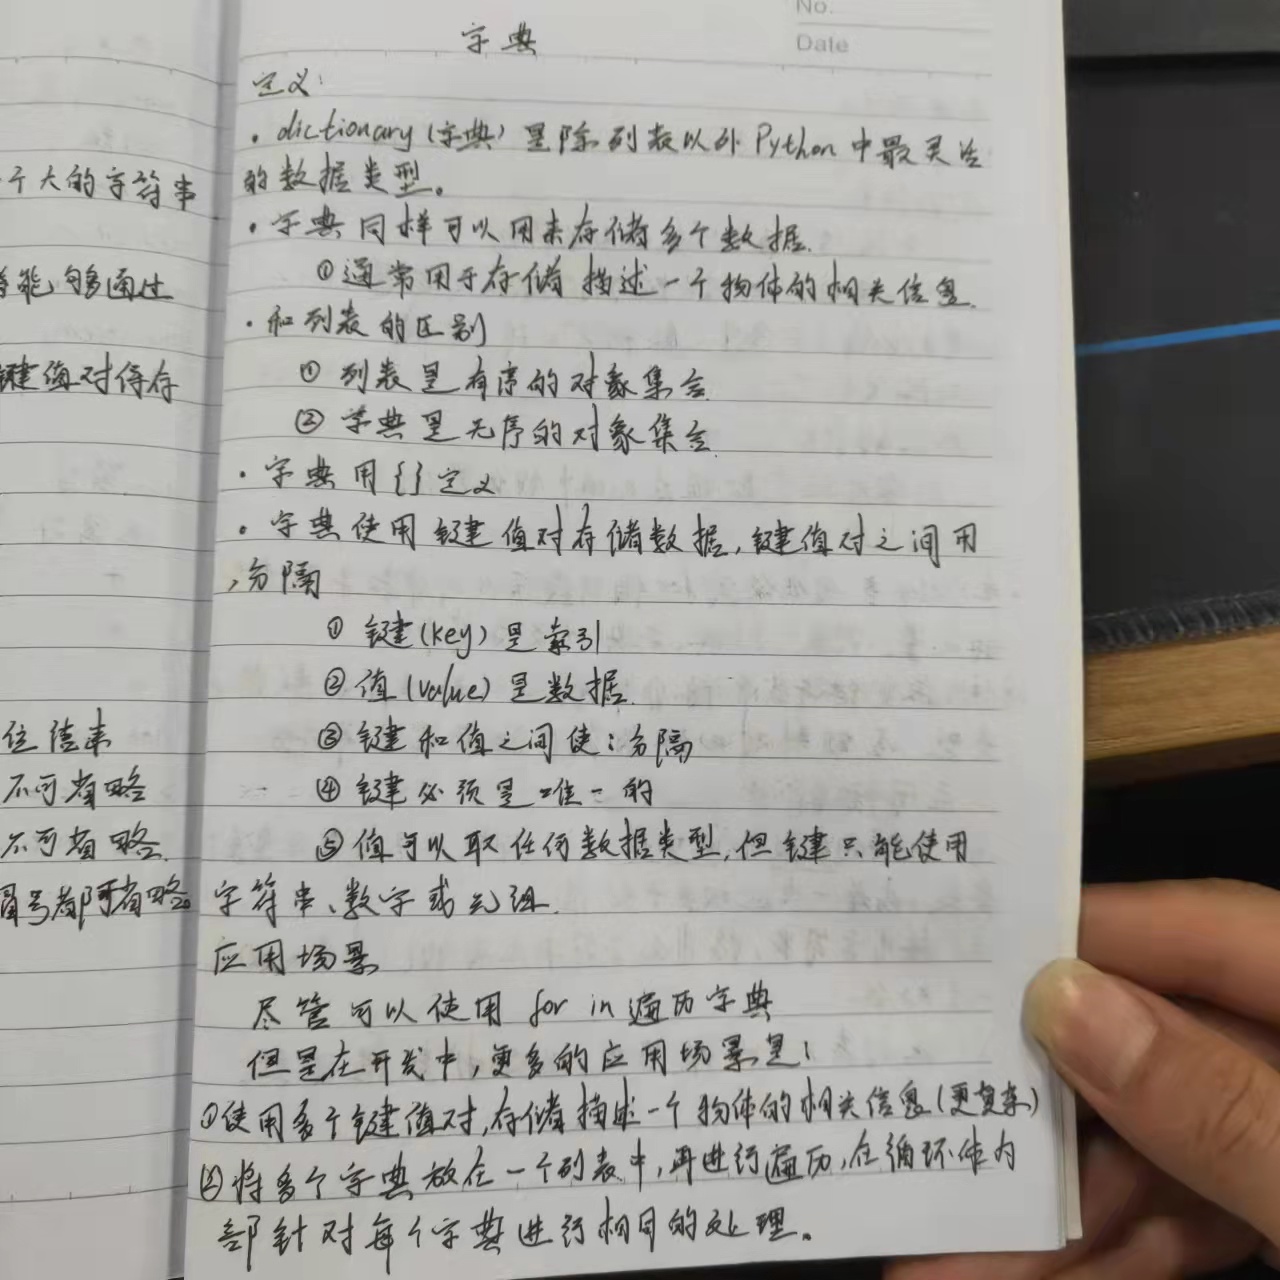 No.
Date
字典
定义:
· dictionary(字典)是除列表以外Python中最灵活
的数据类型。
· 字典同样可以用来存储多个数据.
① 通常用于存储描述一个物体的相关信息.
· 和列表的区别
① 列表是有序的对象集合.
② 字典是无序的对象集合.
· 字典用{}定义
· 字典使用键值对存储数据,键值对之间用
,分隔
① 键(key)是索引
② 值(value)是数据.
③ 键和值之间使:分隔
④ 键必须是唯一的
⑤ 值可以取任何数据类型,但键只能使用
字符串、数字或元组.
应用场景
尽管可以使用 for in 遍历字典
但是在开发中,更多的应用场景是:
①使用多个键值对,存储描述一个物体的相关信息(更复杂)
②将多个字典放在一个列表中,再进行遍历,在循环体内
部针对每个字典进行相同的处理。
个大的字符串
能够通过
键值对得存
不可省略
不可省略.
冒号都可省略